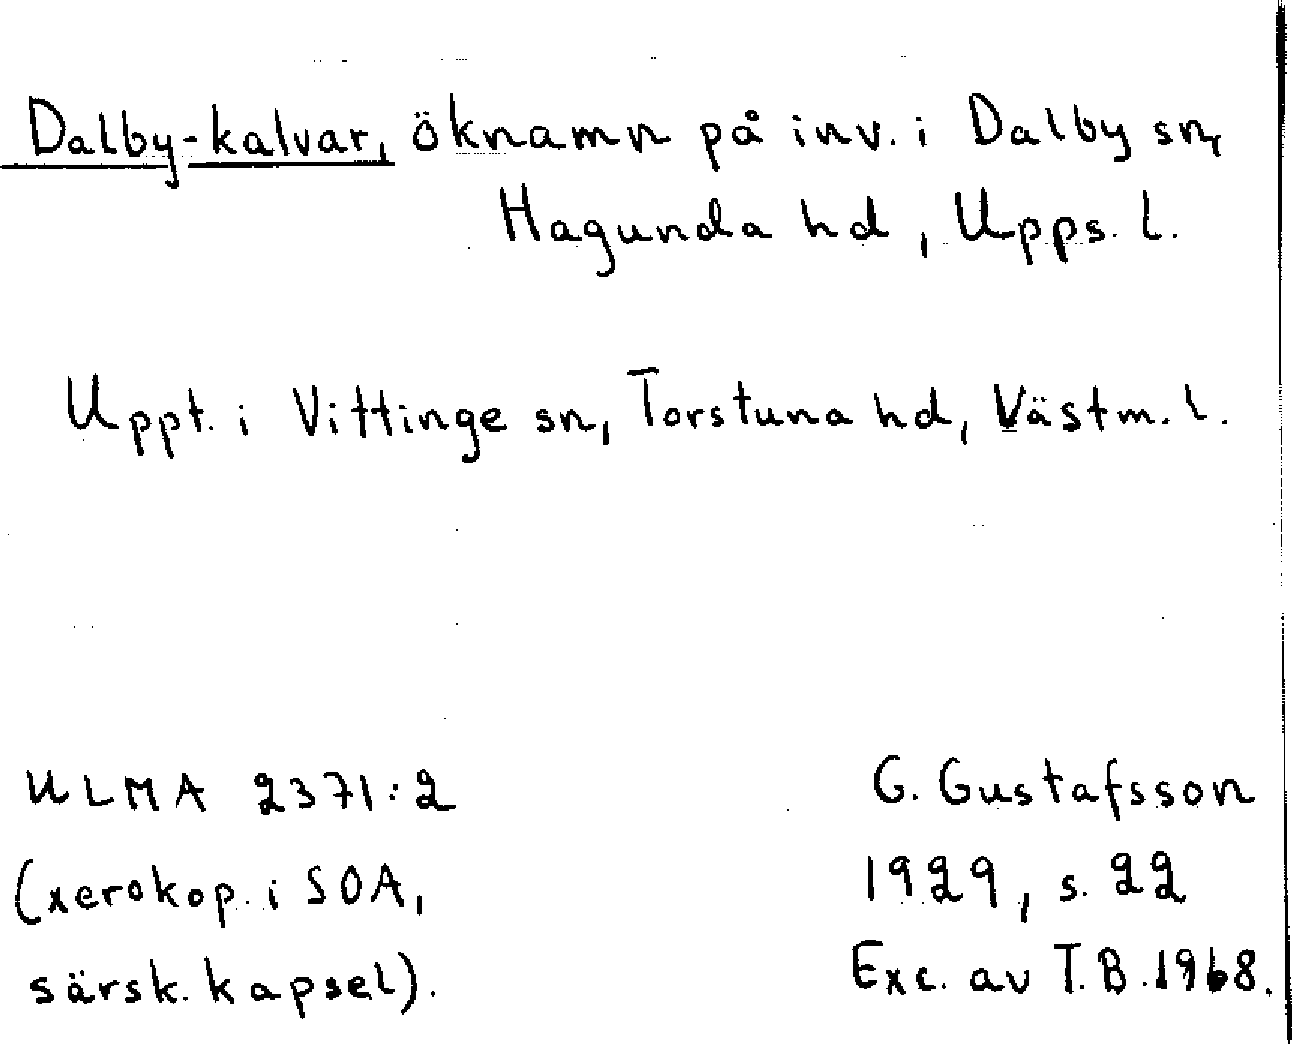 Dalby-kalvar, öknamn på inv. i Dalby sn,
Hagunda hd, Upps. l.
Uppt. i Vittinge sn, Torstuna hd, Västm. l.
ULMA 2371:2
(xerokop. i SOA,
särsk. kapsel).
G. Gustafsson
1929, s. 22
Exc. av T.B. 1968.